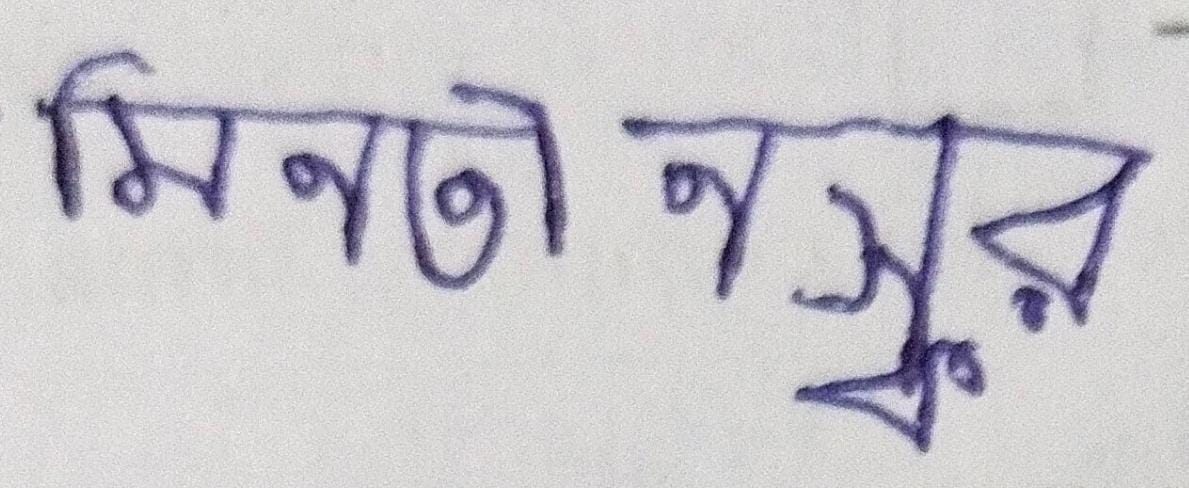 মিনতী নস্কর